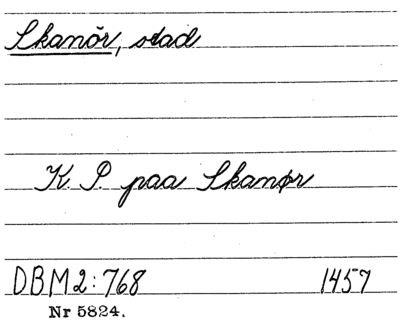 Skanör, stad
K. P. paa Skanør
DBM 2:768 1457
Nr 5824.